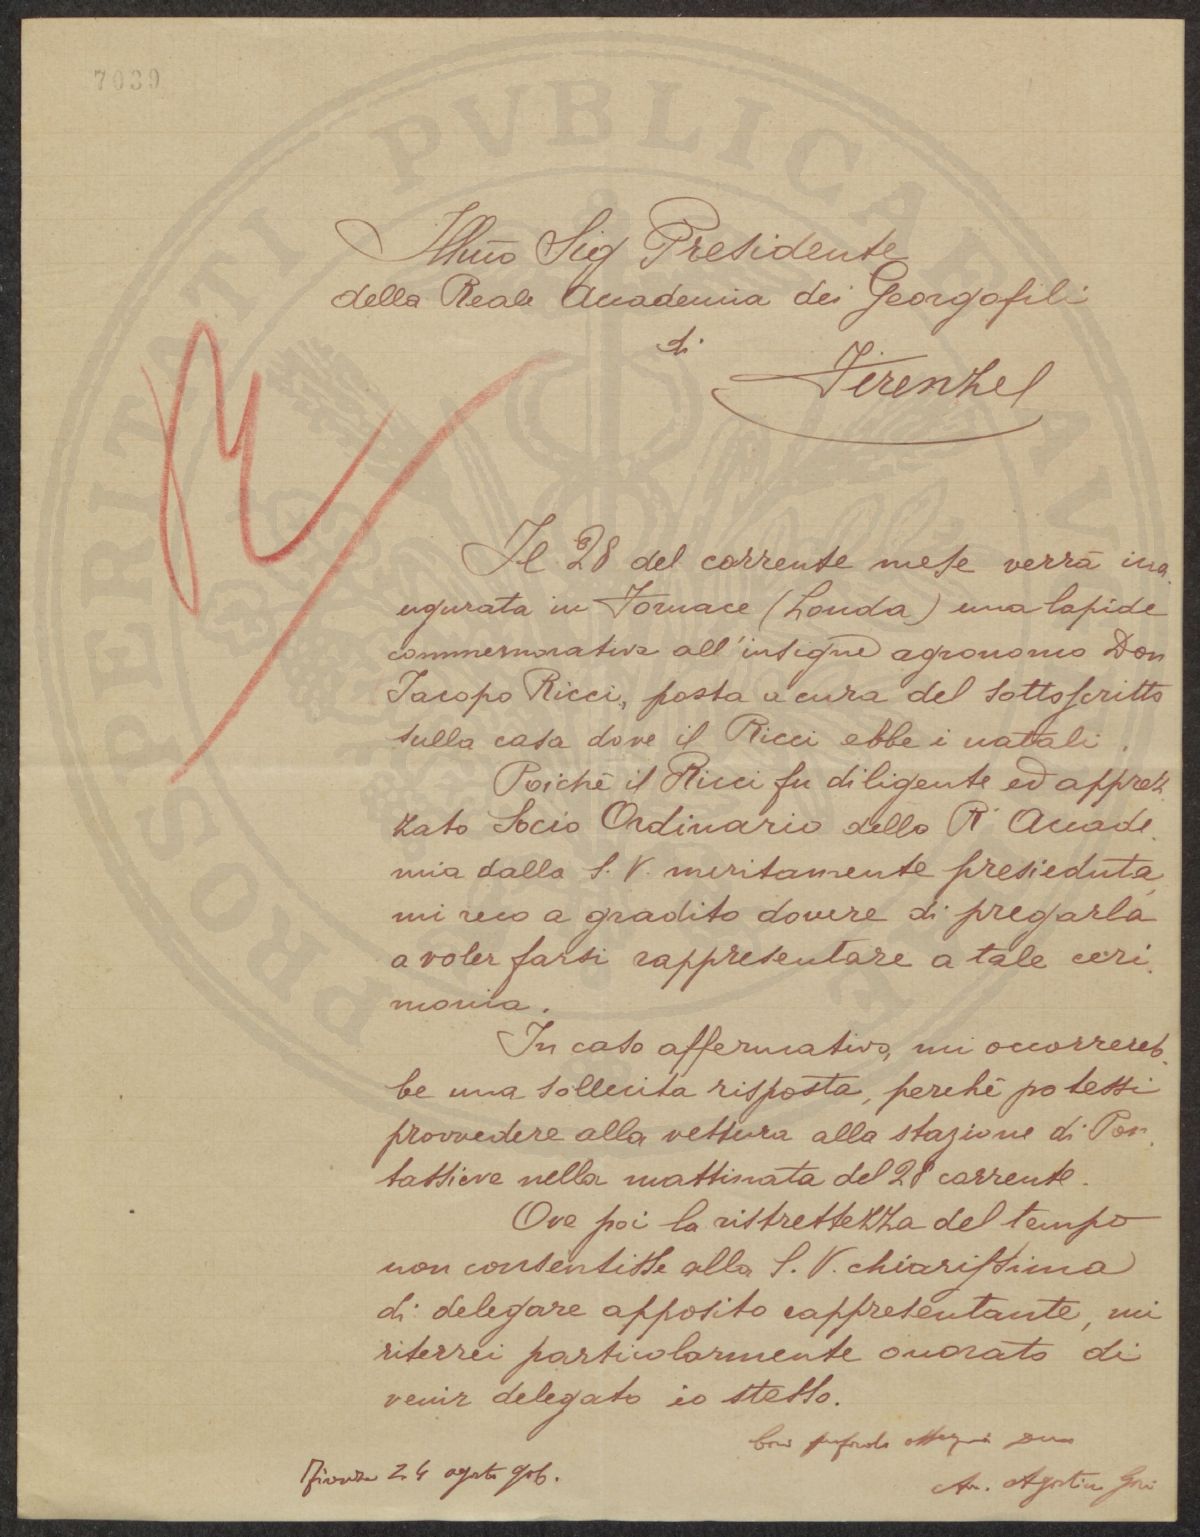 7039
Illmo Sig Presidente
della Reale Accademia dei Georgofili
di
Firenze
Il 28 del corrente mese verrà ina
ugurata in Fornace (Londa) una lapide
commemorativa all'insigne agronomo Don
Jacopo Ricci, posta a cura del sottoscritto
sulla casa dove il Ricci ebbe i natali.
Poichè il Ricci fu diligente ed apprez
zato Socio Ordinario della R. Accade
mia dalla S. V. meritamente presieduta,
mi reco a gradito dovere di pregarla
a voler farsi rappresentare a tale ceri
monia.
In caso affermativo, mi occorrereb
be una sollecita risposta, perchè potessi
provvedere alla vettura alla stazione di Pon
tassieve nella mattinata del 28 corrente.
Ove poi la ristrettezza del tempo
non consentisse alla S. V. chiarissima
di delegare apposito rappresentante, mi
riterrei particolarmente onorato di
venir delegato io stesso.
Con profondo ossequio
Firenze 24 agosto 906.
Av. Agostino Gori
PROSPERITATI PVBLICAE AVGENDAE